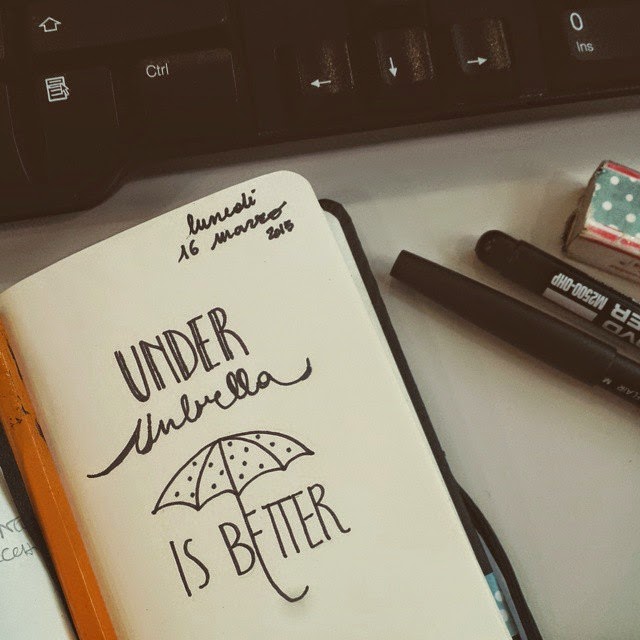 Ctrl
0
Ins
lunedì
16 marzo
2015
UNDER
Umbrella
IS BETTER
M2500-OHP